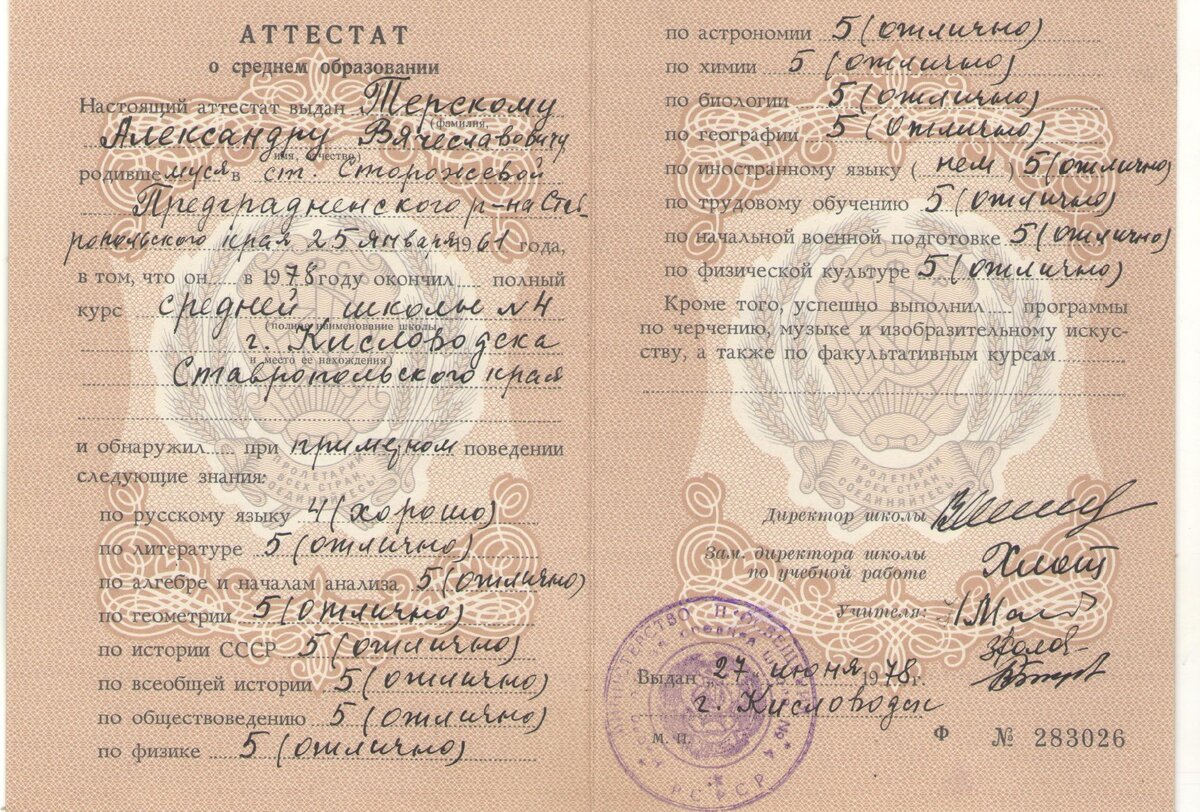 АТТЕСТАТ
о среднем образовании
Настоящий аттестат выдан Терскому
(фамилия,
Александру Вячеславовичу
имя, отчество)
родившемуся в ст. Сторожевой
Преградненского р-на Став
ропольского края 25 января 1961 года,
в том, что он в 1978 году окончил полный
курс средней школы № 4
(полное наименование школы,
г. Кисловодска
место ее нахождения)
Ставропольского края
и обнаружил при примерном поведении
следующие знания:
по русскому языку 4 (хорошо)
по литературе 5 (отлично)
по алгебре и началам анализа 5 (отлично)
по геометрии 5 (отлично)
по истории СССР 5 (отлично)
по всеобщей истории 5 (отлично)
по обществоведению 5 (отлично)
по физике 5 (отлично)
по астрономии 5 (отлично)
по химии 5 (отлично)
по биологии 5 (отлично)
по географии 5 (отлично)
по иностранному языку (нем) 5 (отлично)
по трудовому обучению 5 (отлично)
по начальной военной подготовке 5 (отлично)
по физической культуре 5 (отлично)
Кроме того, успешно выполнил программы
по черчению, музыке и изобразительному искус-
ству, а также по факультативным курсам
ПРОЛЕТАРИИ
ВСЕХ СТРАН,
СОЕДИНЯЙТЕСЬ!
ПРОЛЕТАРИИ
ВСЕХ СТРАН,
СОЕДИНЯЙТЕСЬ!
Директор школы
Зам. директора школы
по учебной работе
Учителя:
МИНИСТЕРСТВО ПРОСВЕЩЕНИЯ
РСФСР
Выдан 27 июня 1978 г.
г. Кисловодск
М. П.
Ф № 283026